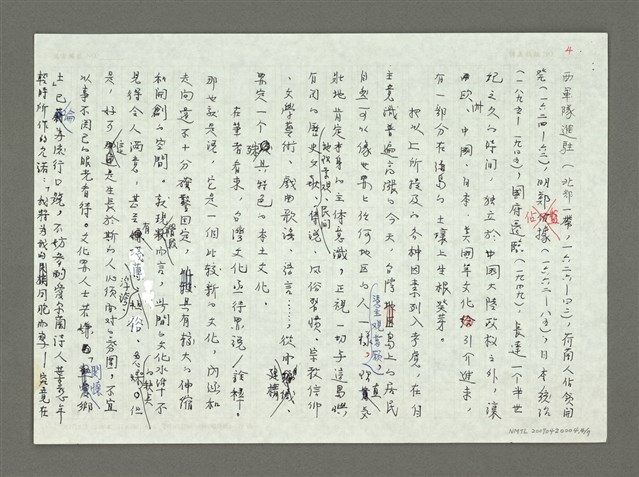 4
西軍隊進駐(北部一帶，一六二六—四三)，荷蘭人佔領開
發(一六二四—六二)，明鄭佔據(一六六一—八三)，日本統治
(一八九五—一九四五)，國府遷臨(一九四九)，長達一個半世
紀之久的時間，獨立於中國大陸政權之外，讓
西歐、中國、日本、美國等文化給引介進來，
有一部分在海島的土壤上生根發芽。
把以上所談及的各種因素列入考慮，在自
主意識普遍高漲的今天，台灣島上的居民
自然可以像世界上任何地區的人一樣，
壯地肯定本身的主體意識，正視一切與這島嶼
有關的歷史文獻、傳說、民間風俗習慣、宗教信仰
、文學藝術、戲曲歌謠、語言……，從而建構
界定一個獨具特色的本土文化。
在筆者看來，台灣文化這一種界說、詮釋，
那也就是說，它是一個比較新的文化，內涵和
走向還不十分確鑿固定，具有較大的伸縮
和開創的空間。表現階段而言，此間的文化水準不
見得令人滿意，甚至有
是，好歹這是生長於斯的人必須面對的氛圍，不宜
以事不關己的眼光看待。文化界人士若
土」已淪為流行口號，不妨參酌愛爾蘭詩人葉慈年
輕時所作的允諾：「我將為我的民族同胞而寫—究竟在
NMTL 20090450004